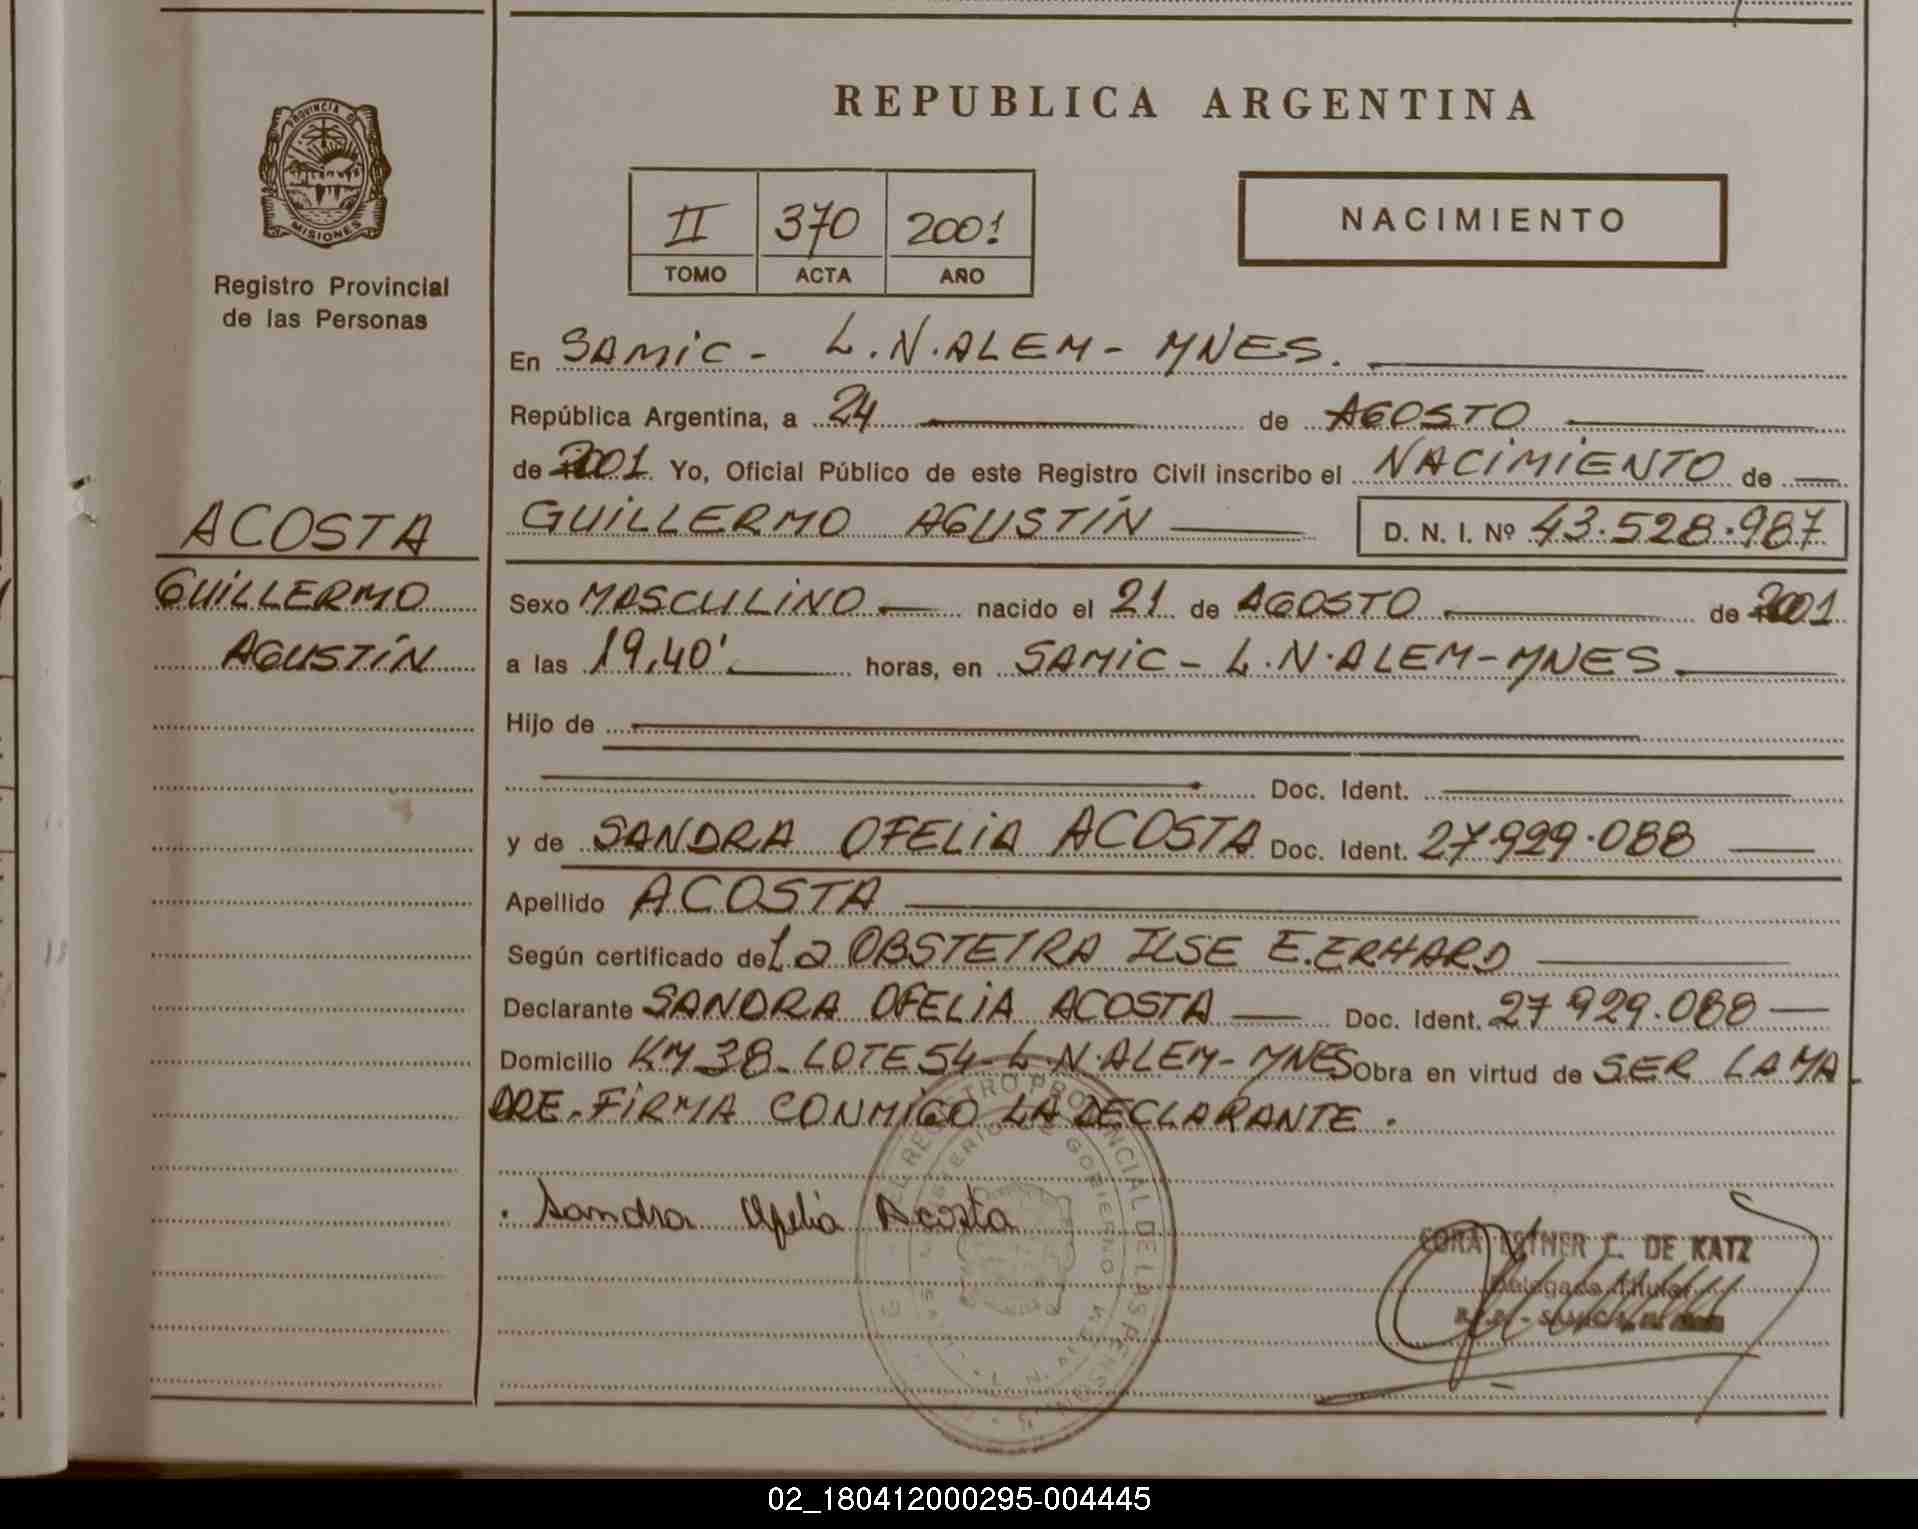 REPUBLICA ARGENTINA
PROVINCIA DE
MISIONES
Registro Provincial
de las Personas
II 370 2001
TOMO ACTA AÑO
NACIMIENTO
En SAMIC - L.N.ALEM - MNES.
República Argentina, a 24 de AGOSTO
de 2001 Yo, Oficial Público de este Registro Civil inscribo el NACIMIENTO de
GUILLERMO AGUSTÍN D. N. I. Nº 43.528.987
ACOSTA
GUILLERMO
AGUSTÍN
Sexo MASCULINO nacido el 21 de AGOSTO de 2001
a las 19,40'. horas, en SAMIC - L.N.ALEM - MNES
Hijo de
Doc. Ident.
y de SANDRA OFELIA ACOSTA Doc. Ident. 27.929.088
Apellido ACOSTA
Según certificado de La OBSTETRA ILSE E. ERHARD
Declarante SANDRA OFELIA ACOSTA Doc. Ident. 27 929.088
Domicilio KM 38 - LOTE 54 - L.N.ALEM - MNES Obra en virtud de SER LA MA
DRE. FIRMA CONMIGO LA DECLARANTE.
REGISTRO PROVINCIAL DE LAS PERSONAS
MINISTERIO DE GOBIERNO
Sandra Ofelia Acosta
CORA ESTHER C. DE KATZ
Delegada Titular
02_180412000295-004445